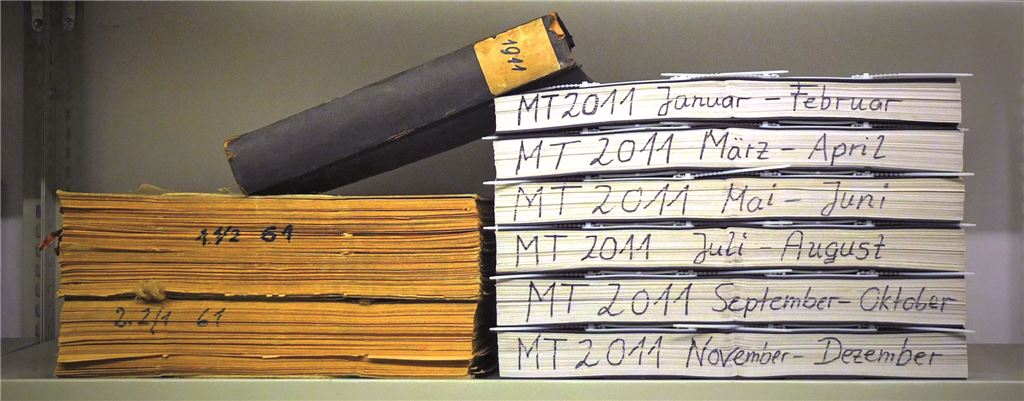 1911
MT 2011 Januar – Februar
MT 2011 März – April
MT 2011 Mai – Juni
MT 2011 Juli – August
MT 2011 September – Oktober
MT 2011 November – Dezember
1.1/2 61
2.2/1 61